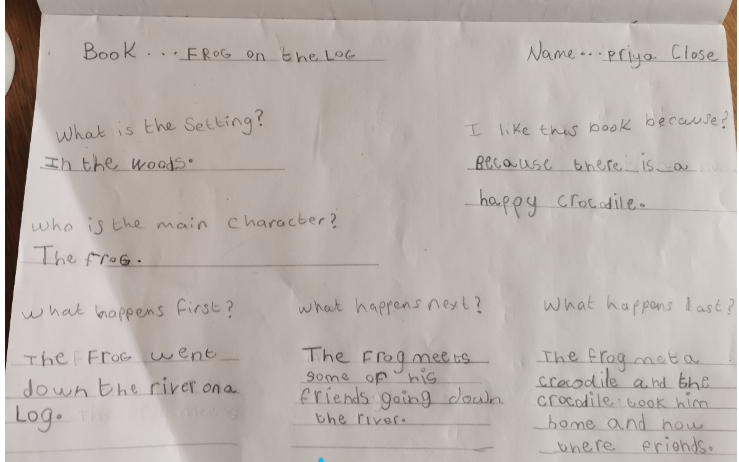 Book... FROG on the LOG
Name... Priya Close
What is the Setting?
In the woods.
I like this book because?
Because there is a
happy crocodile.
who is the main character?
The froG.
what happens first?
The FroG went
down the river on a
Log.
what happens next?
The Frog meets
some of his
friends going down
the river.
What happens last?
The frog met a
crocodile and the
crocodile took him
home and now
there friends.